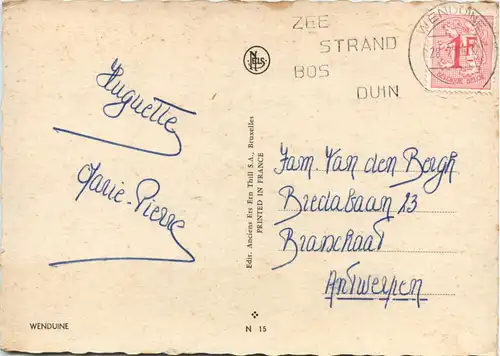 ZEE
STRAND
BOS
DUIN
WENDUINE
1F
NELS
Huguette
Marie-Pierre
Edit. Anciens Ets Ern Thill S.A., Bruxelles
PRINTED IN FRANCE
Fam. Van den Bergh
Bredabaan 23
Braschaat
Antwerpen
WENDUINE
N 15